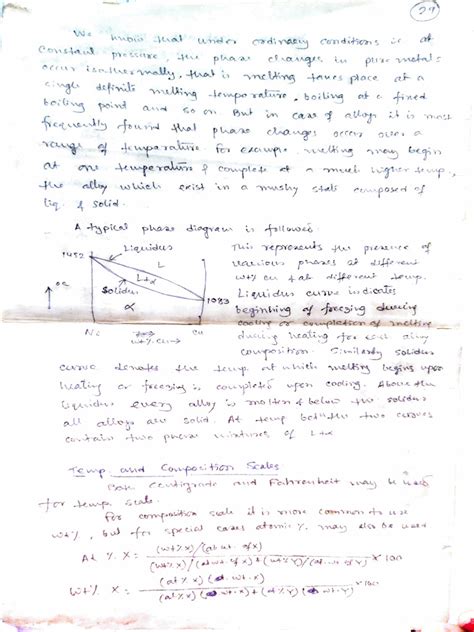 29
We know that under ordinary conditions ie at
constant pressure, the phase changes in pure metals
occur isothermally, that is melting takes place at a
single definite melting temperature, boiling at a fixed
boiling point and so on. But in case of alloys it is most
frequently found that phase changes occur over a
range of temperature. For example, melting may begin
at one temperature & complete at a much higher temp.,
the alloy which exist in a mushy state composed of
liq. & solid.
A typical phase diagram is followed.
1452
Liquidus
L
L+α
Solidus
α
1083
°C
Ni
wt% Cu
Cu
This represents the presence of
various phases at different
wt% Cu & at different temp.
Liquidus curve indicates
beginning of freezing during
cooling or completion of melting
during heating for composition. Similarly solidus
curve denotes the temp. at which melting begins upon
heating or freezing is completed upon cooling. Above the
liquidus every alloy is molten & below the solidus
all alloys are solid. At temp betn the two curves
contain two phase mixtures of L+α
Temp and Composition Scales
Both Centigrade and Fahrenheit may be used
for temp. scale.
For composition scale it is more common to use
wt%, but for special cases atomic % may also be used
At % X = (wt % X)/(at wt. of X) / (wt % X)/(at wt. of X) + (wt % Y)/(at. wt. of Y) × 100
wt% X = (at % X) (at. wt. X) / (at % X) (at. wt. X) + (at % Y) (at. wt. Y) × 100